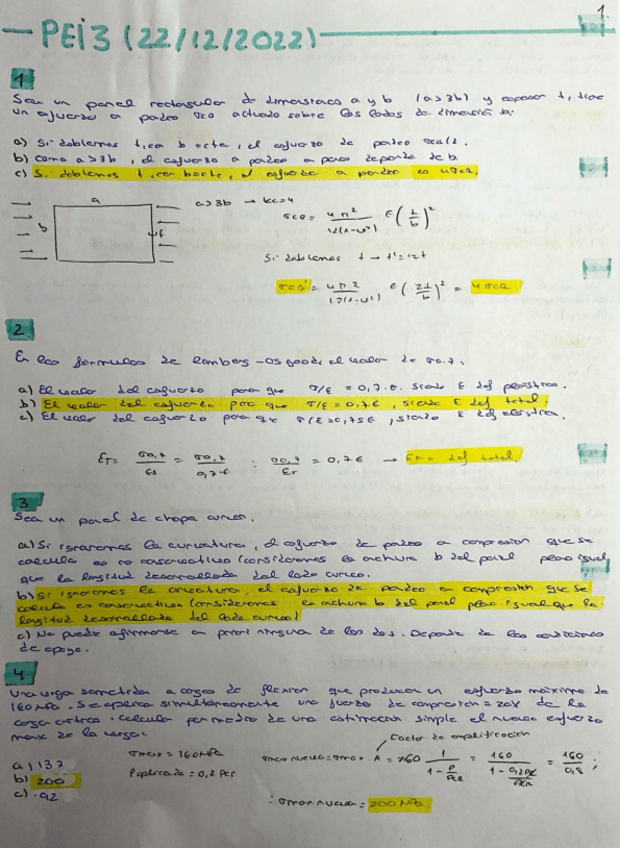 1.
PEI 3 (22/12/2022)
1
Sea un panel rectangular de dimensiones a y b (a>3b) y espesor t, tiene
un esfuerzo a pandeo σco actuado sobre los lados de dimensión b:
a) Si doblamos t, con b cte, el esfuerzo de pandeo
b) Como a>3b, el esfuerzo a pandeo a pena depende de b.
c) Si doblamos t con b cte, el esfuerzo a pandeo es 4σcr.
a
b
t
a>3b → kc=4
Si doblamos t → t'=2t
2
En las fórmulas de Ramberg-Osgood, el valor de σ0.7.
a) El valor del esfuerzo para que σ/ε = 0,7. siendo ε def plástica.
b) El valor del esfuerzo para que σ/ε = 0,7E, siendo ε def total.
c) El valor del esfuerzo para que siendo ε def elástica.
= 0,7E → def total.
3
Sea un panel de chapa curvo.
a) Si ignoramos la curvatura, el esfuerzo de pandeo a compresión que se
calcula es no conservativo (consideramos la anchura b del panel plano igual
que la longitud desarrollada del lado curvo.
b) Si ignoramos la curvatura, el esfuerzo de pandeo a compresión que se
calcula es conservativo (consideramos la anchura b del panel plano igual que la
longitud desarrollada del lado curvo)
c) No puede afirmarse a priori ninguna de las dos. Depende de las condiciones
de apoyo.
4
Una viga sometida a cargas de flexión que producen un esfuerzo máximo de
160 MPa. Se aplica simultáneamente una fuerza de compresión = 20% de la
carga crítica. Calcula por medio de una estimación simple el nuevo esfuerzo
max de la viga:
Factor de amplificación
a) 137
σmax = 160 MPa
b) 200
P aplicada = 0,2 Pcr
c) 192
σmax nueva = 200 MPa.